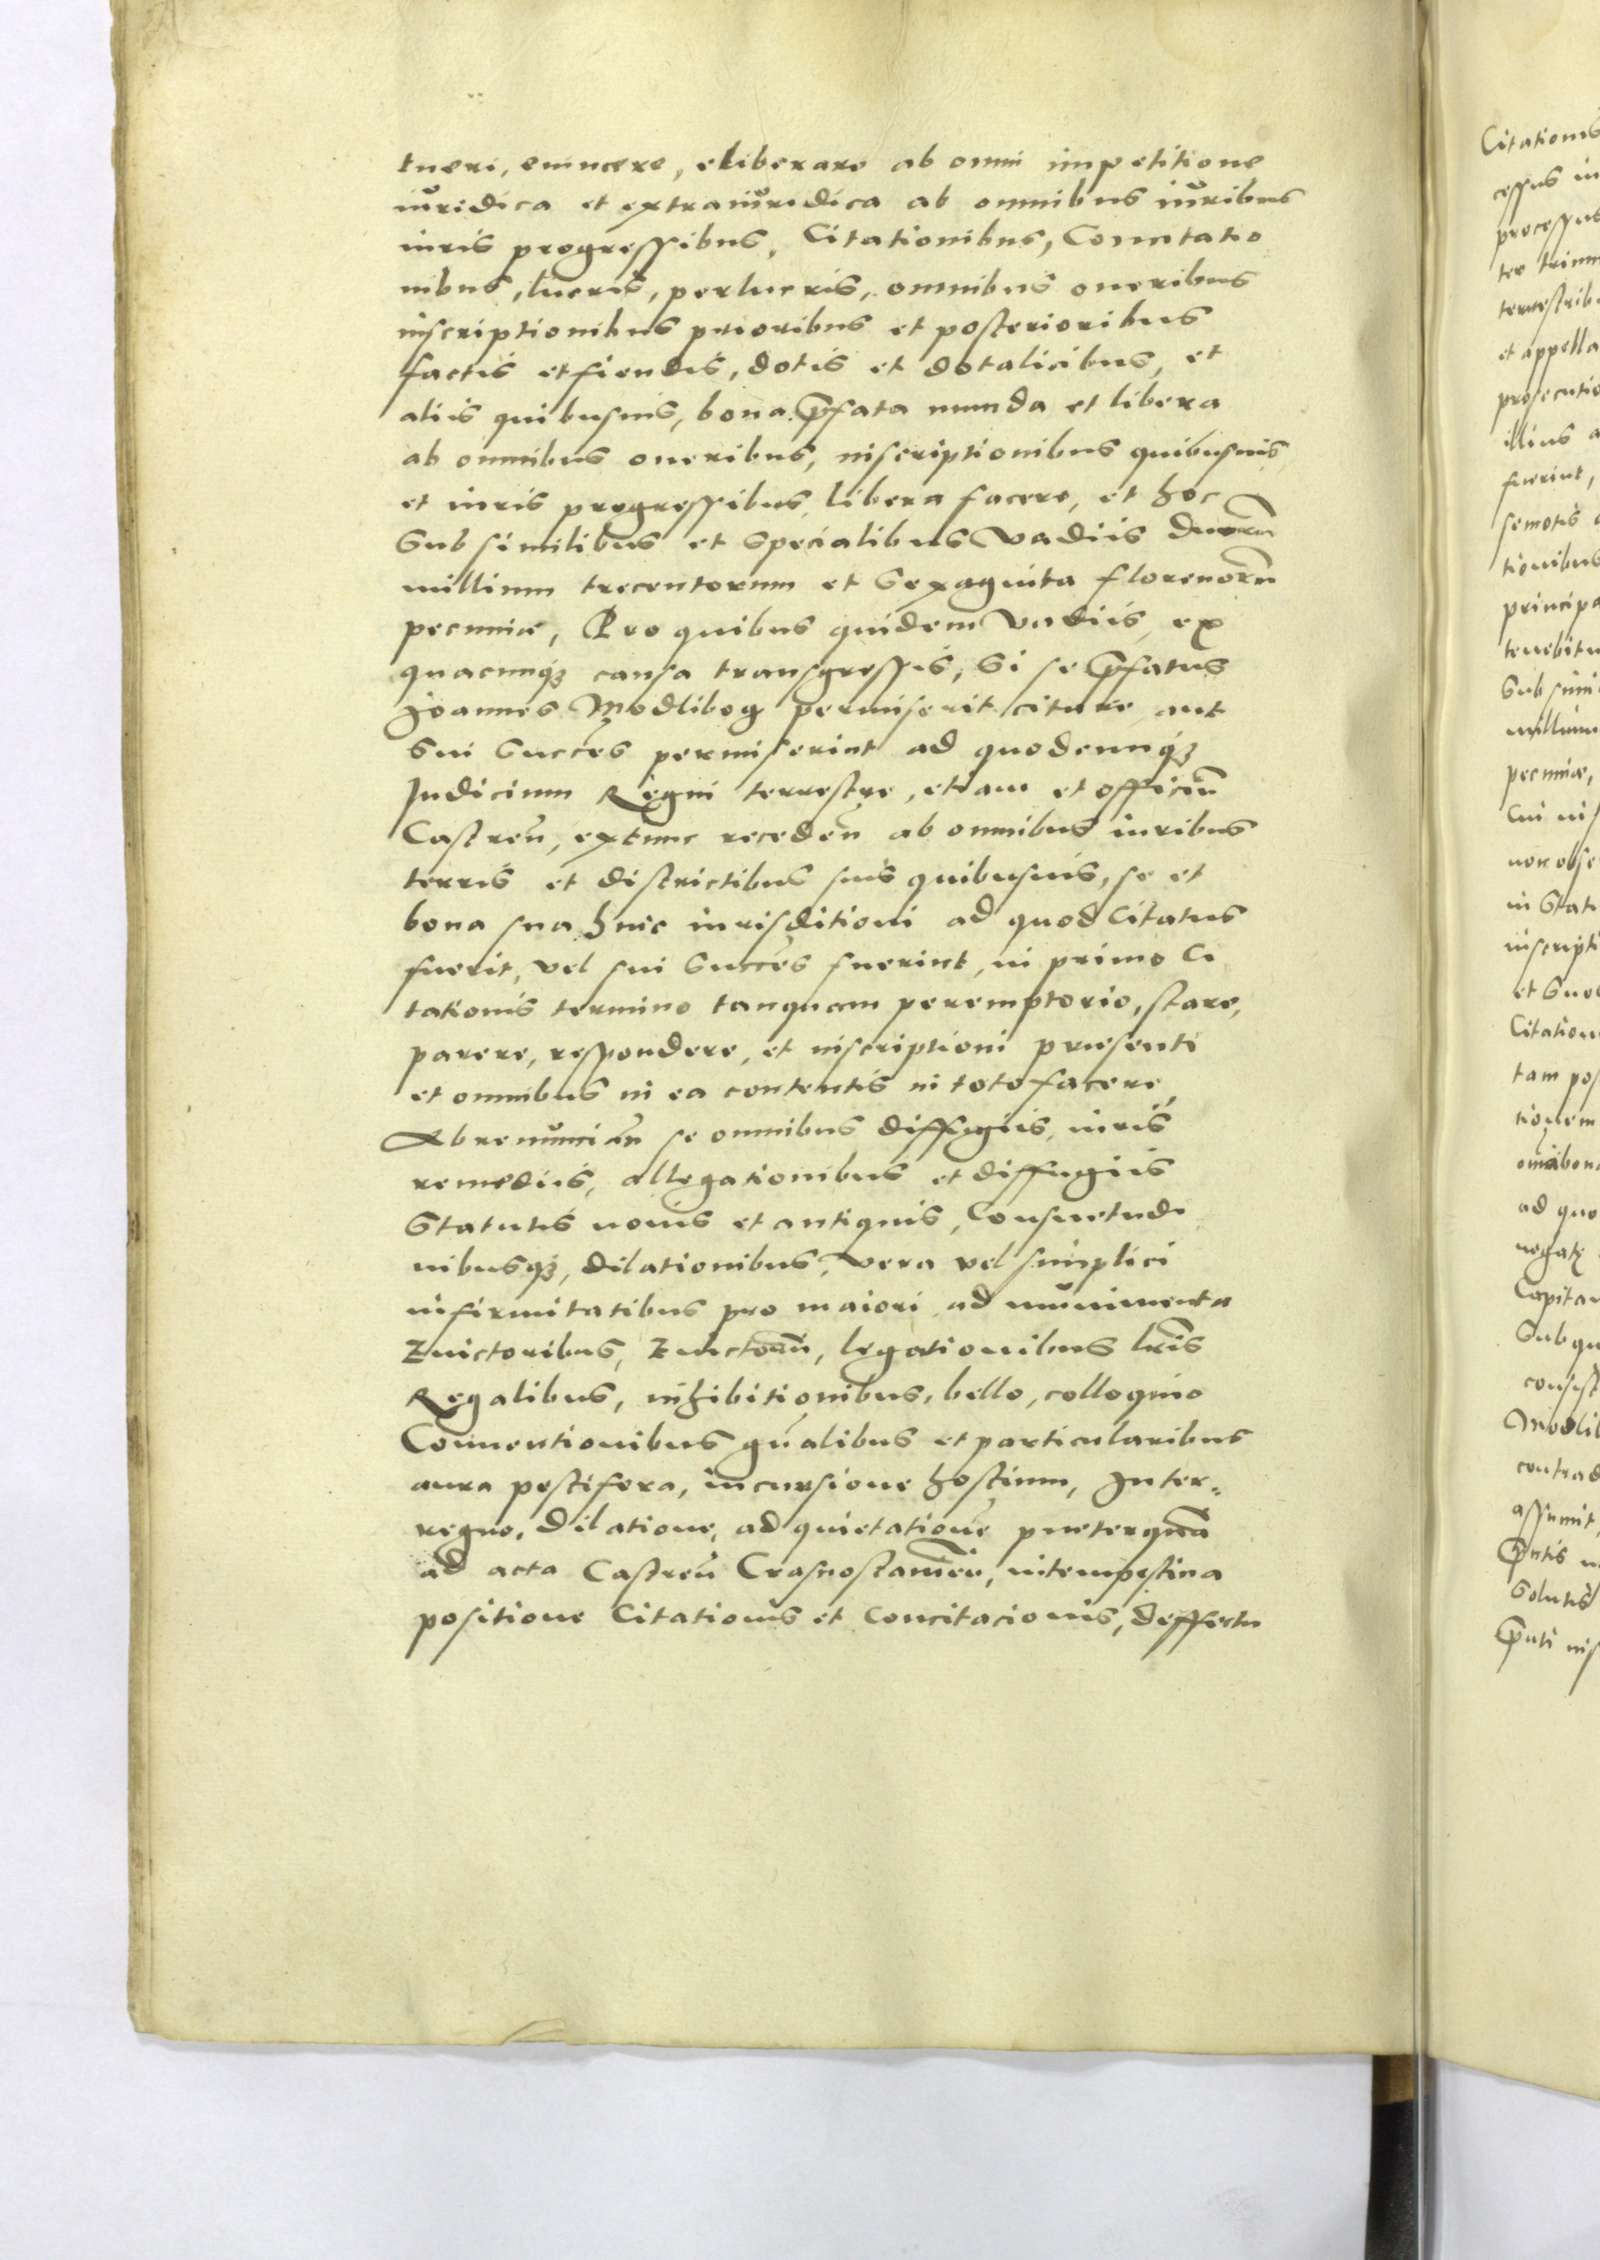 tueri, euincere, eliberare ab omni impetitione
iuridica et extraiuridica ab omnibus iuribus
iuris progressibus, Citationibus, Concitatio
nibus, lucris, perlucris, omnibus oneribus
inscriptionibus prioribus et posterioribus
factis et fiendis, dotis et dotalicibus, et
aliis quibusuis, bona p̄fata munda et libera
ab omnibus oneribus, inscriptionibus quibusuis
et iuris progressibus libera facere, et hoc
Sub similibus et specialibus Vadiis duorū
millium trecentorum et Sexaginta florenorū
pecuniæ, Pro quibus quidem Vadiis, ex
quacunqꝫ causa transgressis, Si se p̄fatus
Joannes Modlibog permiserit citare aut
Sui Succēs permiserint ad quodcunqꝫ
Judicium Regni terrestre, etiam et officiū
Castreñ, extunc recedeñ ab omnibus iuribus
terris et districtibus suis quibusuis, se et
bona sua huic iurisditioni ad quod Citatus
fuerit, vel sui Succēs fuerint, in primo Ci
tationis termino tanquam peremptorio, stare,
parere, respondere, et inscriptioni præsenti
et omnibus in ea contentis in toto facere,
Abrenuncian̄ se omnibus diffugiis, iuris
remediis, allegationibus et diffugiis
Statutis nouis et antiquis, Consuetudi
nibusqꝫ, dilationibus, vera vel simplici
infirmitatibus pro maiori ad munimenta
Euictoribus, Euictorū, legationibus lr̄is
Regalibus, inhibitionibus, bello, colloquio
Conuentionibus gn̄alibus et particularibus
aura pestifera, incursione hostium, Inter-
regno, dilatione, ad quietationē præterquā
ad acta Castreñ Crasnostauień, intempestiua
positione Citationis et Concitacionis, deffectu

Citationis
cessus in
processus
ter trium
terrestrib
et appella
prosecutio
illius a
fuerint,
semotis
tionibus
principa
tenebitu
Sub simi
millium
pecuniæ,
non obse
in Stat
inscripti
et Suc
Citation
tam pos
tionem
ad quo
Capitan
Sub qu
consist
Modlib
contrad
assumit
Solutis